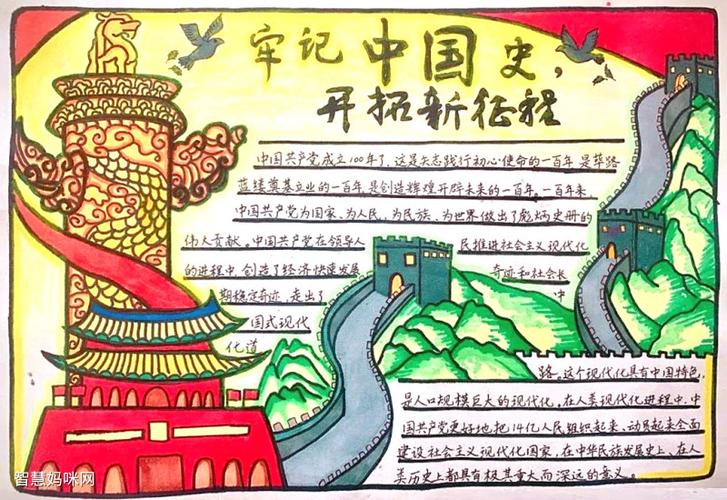 牢记中国史，
开拓新征程
中国共产党成立100年了，这是矢志践行初心使命的一百年是筚路
蓝缕奠基立业的一百年，是创造辉煌开辟未来的一百年。一百年来，
中国共产党为国家、为人民、为民族、为世界做出了彪炳史册的
伟大贡献。中国共产党在领导人民推进社会主义现代化
的进程中，创造了经济快速发展奇迹和社会长
期稳定奇迹，走出了中
国式现代
化道
路。这个现代化具有中国特色，
是人口规模巨大的现代化。在人类现代化进程中，中
国共产党更好地把14亿人民组织起来、动员起来全面
建设社会主义现代化国家，在中华民族发展史上、在人
类历史上都具有极其重大而深远的意义。
智慧妈咪网